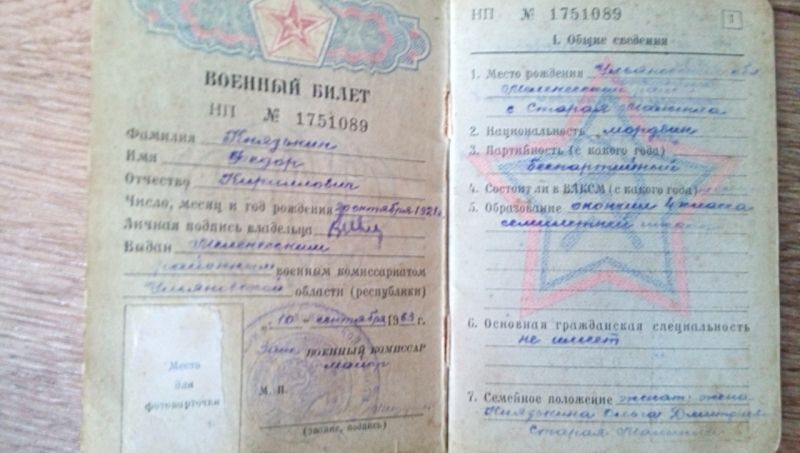 ВОЕННЫЙ БИЛЕТ
НП № 1751089
Фамилия Князькин
Имя Федор
Отчество Кириллович
Число, месяц и год рождения октября 1921г.
Личная подпись владельца
Выдан
районным военным комиссариатом
Ульяновской области (республики)
„10" сентября 1963 г.
ВОЕННЫЙ КОМИССАР
майор
М. П.
(звание, подпись)
Место
для
фотокарточки
НП № 1751089
3
1. Общие сведения
1. Место рождения Ульяновской обл
район
с Старая
2. Национальность мордвин
3. Партийность (с какого года)
беспартийный
4. Состоит ли в ВЛКСМ (с какого года)
5. Образование окончил 4 класса
семилетней
6. Основная гражданская специальность
не имеет
7. Семейное положение женат: жена
Князькина Ольга
Старая